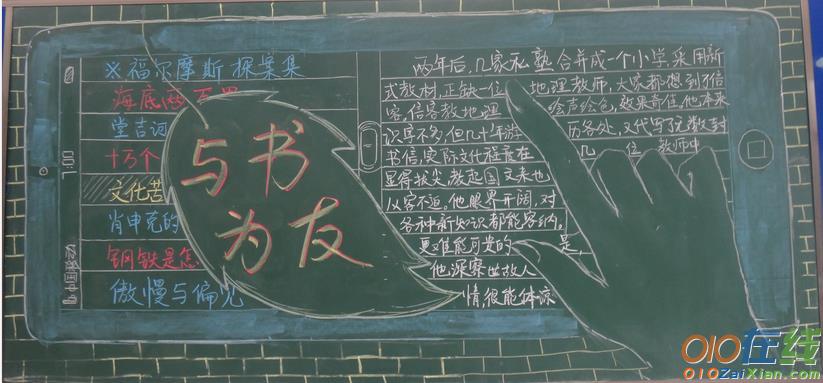 ※福尔摩斯探案集
海底两
堂吉诃
十万个
文化苦
肖申克的
钢铁是怎
傲慢与偏见
1:00
中国移动
与书
为友
两年后,几家私塾合并成一个小学,采用新
式教材,正缺一位 地理教师,大家都想到了信
客,信客教地理 绘声绘色,效果奇佳,他本来
识字不多,但几十年游 历各处,又代写了无数封
书信,实际文化程度在 几 位 教师中
显得拔尖,教起国 文来也
从容不迫。他眼界开阔,对
各种新知识都能容纳。
更难能可贵的 是,
他深察世故人
情很能体谅
010在线
010ZaiXian.com